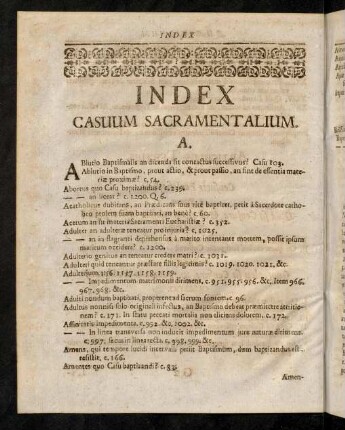 INDEX
INDEX
CASUUM SACRAMENTALIUM.
A.
ABlutio Baptismalis an dicenda sit contactus successivus? Casu 103.
Ablutio in Baptismo, prout actio, & prout passio, an sint de essentia mate-
riæ proximæ? c. 14.
Abortus quo Casu baptizandus? c. 239.
— — an licitus? c. 1200. Q. 6.
Acatholicus dubitans, an Prædicans suus ritè baptizet, petit à Sacerdote catho-
lico prolem suam baptizari, an bene? c. 60.
Acetum an sit materia Sacramenti Eucharistiæ? c. 352.
Adulter an adulteræ teneatur pro injuria? c. 1025.
— — an in flagranti deprehensus à marito intentante mortem, possit ipsum
maritum occidere? c. 1200.
Adulterio genitus an teneatur credere matri? c. 1031.
Adulteri quid teneantur præstare filiis legitimis? c. 1019. 1020. 1021. &c.
Adulterium 1156. 1157. 1158. 1159.
— — Impedimentum matrimonii dirimens, c. 951. 955. 956. &c. Item 966.
967. 968. &c.
Adulti nondum baptizati, properent ad sacrum fontem c. 96.
Adultus nonnisi solo originali infectus, an Baptismo debeat præmittere attritio-
nem? c. 171. In statu peccati mortalis non dicitur dolorem. c. 172.
Affinitatis impedimenta, c. 992. &c. 1092. &c.
— — In linea transversa non inducit impedimentum jure naturæ dirimens.
c. 997. secus in linea recta. c. 998. 999. &c.
Amens, qui tempore lucidi intervalli petiit Baptismum, dum baptizandus est
resistit, c. 166.
Amentes quo Casu baptizandi? c. 83.
Amen-